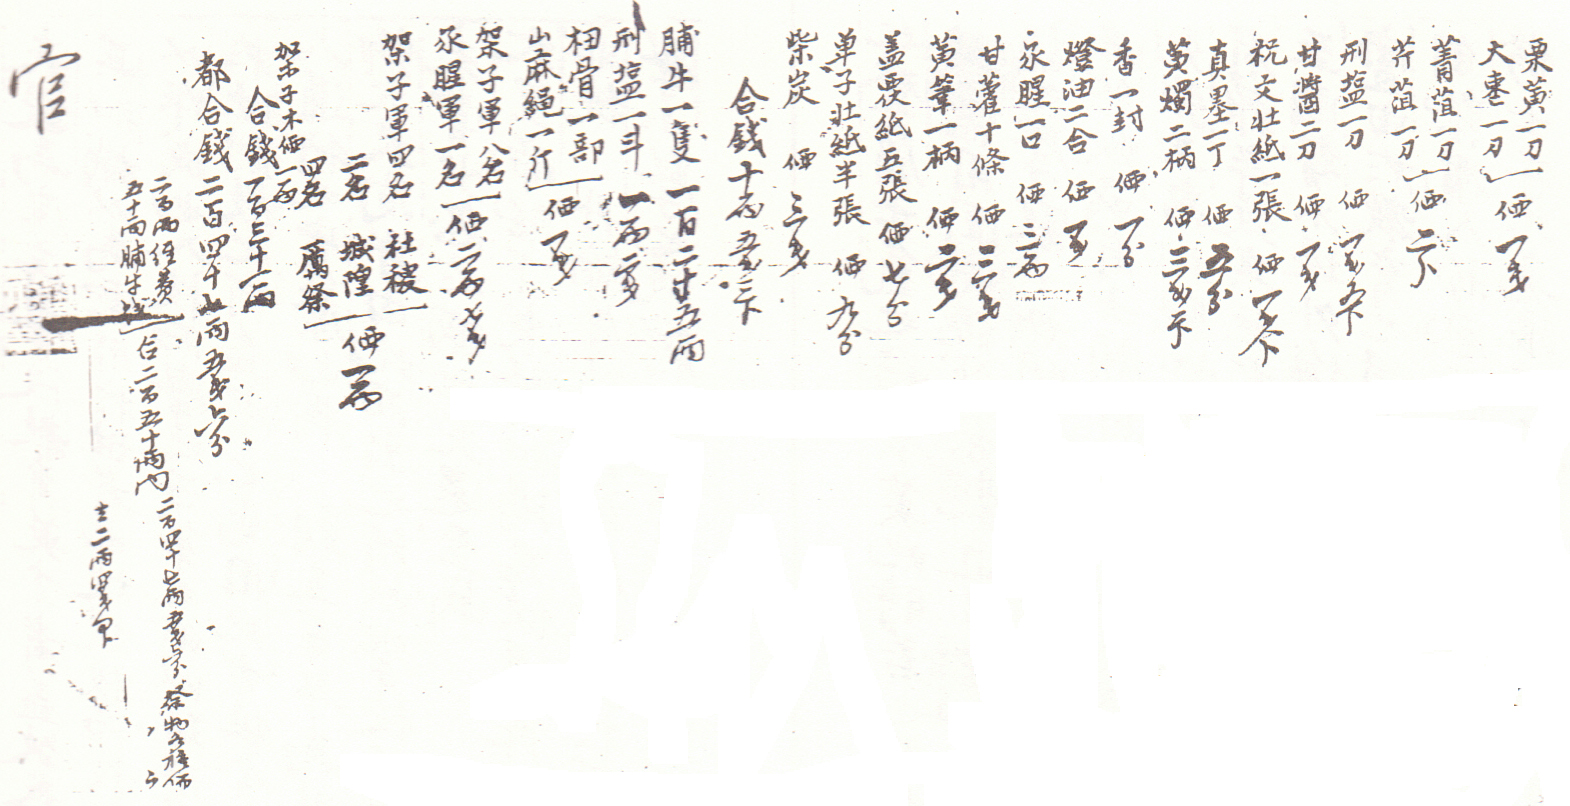 栗黄一刀
大棗一刀 価 一戔
菁菹一刀
芹菹一刀 価 二卜
刑塩一刀 価
甘醬二刀 価 一戔
祝文壯紙一張 価
真墨一丁 価 五分
黄燭二柄 価 三戔
香一封 価 一分
燈油二合 価 一戔
豕腥一口 価 三両
甘藿十條 価 三戔
黄筆一柄 価 二戔
盖覆紙五張 価 七分
単子壯紙半張 価 九分
柴炭 価 三戔
合錢十両五戔三卜
脯牛一隻 一百二十五両
刑塩一斗 一両二戔
杻骨一部
山麻繩一斤 価 一戔
架子軍八名
豕腥軍一名 価二両七戔
架子軍四名 社稷
二名 城隍 価一両
四名 厲祭
架子木価一両
合錢一百三十一両
都合錢二百四十七両五戔七分
二百両
五十両脯牛
合二百五十両内
二百四十七両五戔七分祭物
二両四戔
官